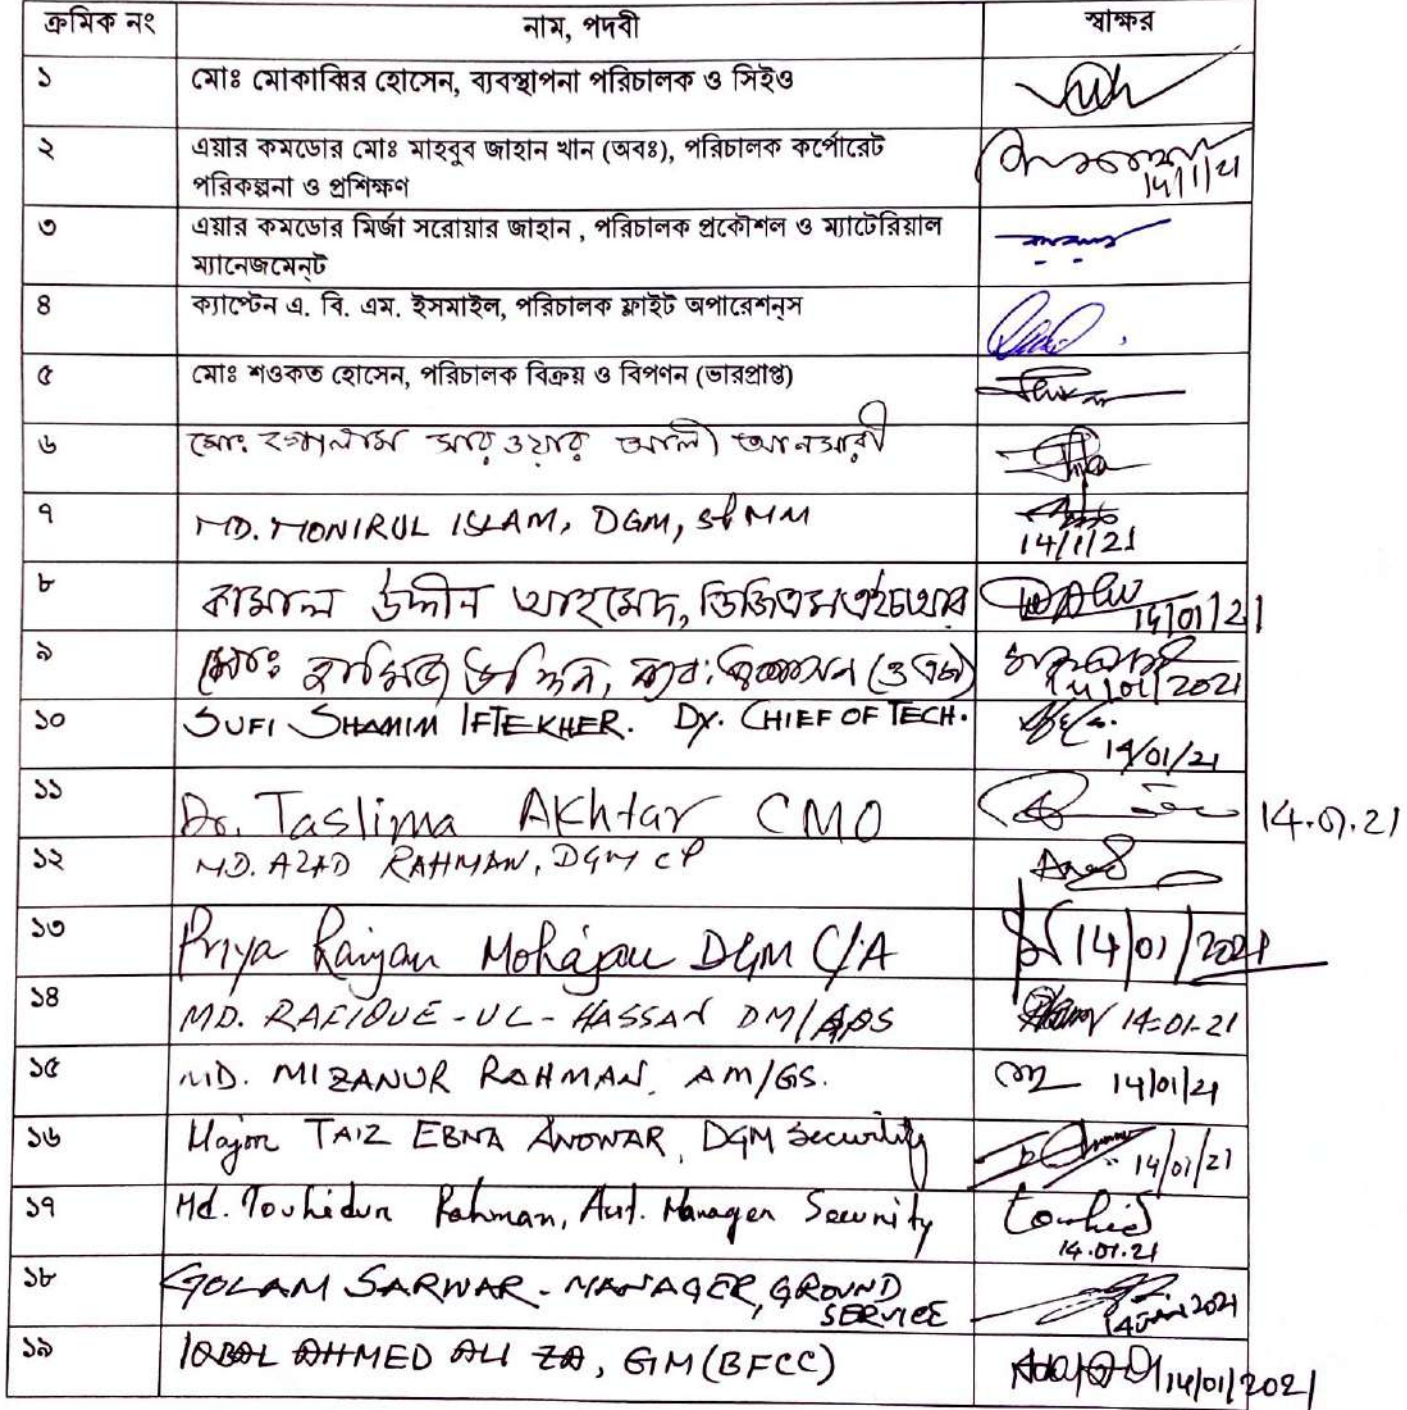 ক্রমিক নং নাম, পদবী স্বাক্ষর
১ মোঃ মোকাব্বির হোসেন, ব্যবস্থাপনা পরিচালক ও সিইও
২ এয়ার কমডোর মোঃ মাহবুব জাহান খান (অবঃ), পরিচালক কর্পোরেট
পরিকল্পনা ও প্রশিক্ষণ
14/1/21
৩ এয়ার কমডোর মির্জা সরোয়ার জাহান , পরিচালক প্রকৌশল ও ম্যাটেরিয়াল
ম্যানেজমেন্ট
৪ ক্যাপ্টেন এ. বি. এম. ইসমাইল, পরিচালক ফ্লাইট অপারেশন্স
৫ মোঃ শওকত হোসেন, পরিচালক বিক্রয় ও বিপণন (ভারপ্রাপ্ত)
৬ মোঃ সারওয়ার আলী আনসারী
৭ MD. MONIRUL ISLAM, DGM,
14/1/21
৮ কামাল উদ্দীন আহমেদ, ডিজিএমএইচআর
14/01/21
৯ মোঃ হাফিজ উদ্দিন,
14/01/2021
১০ SUFI SHAMIM IFTEKHER. Dy. CHIEF OF TECH.
14/01/21
১১ Dr. Taslima Akhtar CMO 14.01.21
১২ MD. AZAD RAHMAN, DGM CP
১৩ Priya Ranjan Mohajan DGM C/A 14/01/2021
১৪ MD. RAFIQUE-UL-HASSAN DM/APS 14-01-21
১৫ MD. MIZANUR RAHMAN, AM/GS. 14/01/21
১৬ Major TAIZ EBNA ANOWAR, DGM Security 14/01/21
১৭ Md. Touhidur Rahman, Asst. Manager Security Touhid
14.01.21
১৮ GOLAM SARWAR - MANAGER, GROUND
SERVICE
14 JAN 2021
১৯ IQBAL AHMED ALI ZA, GM (BFCC) 14/01/2021